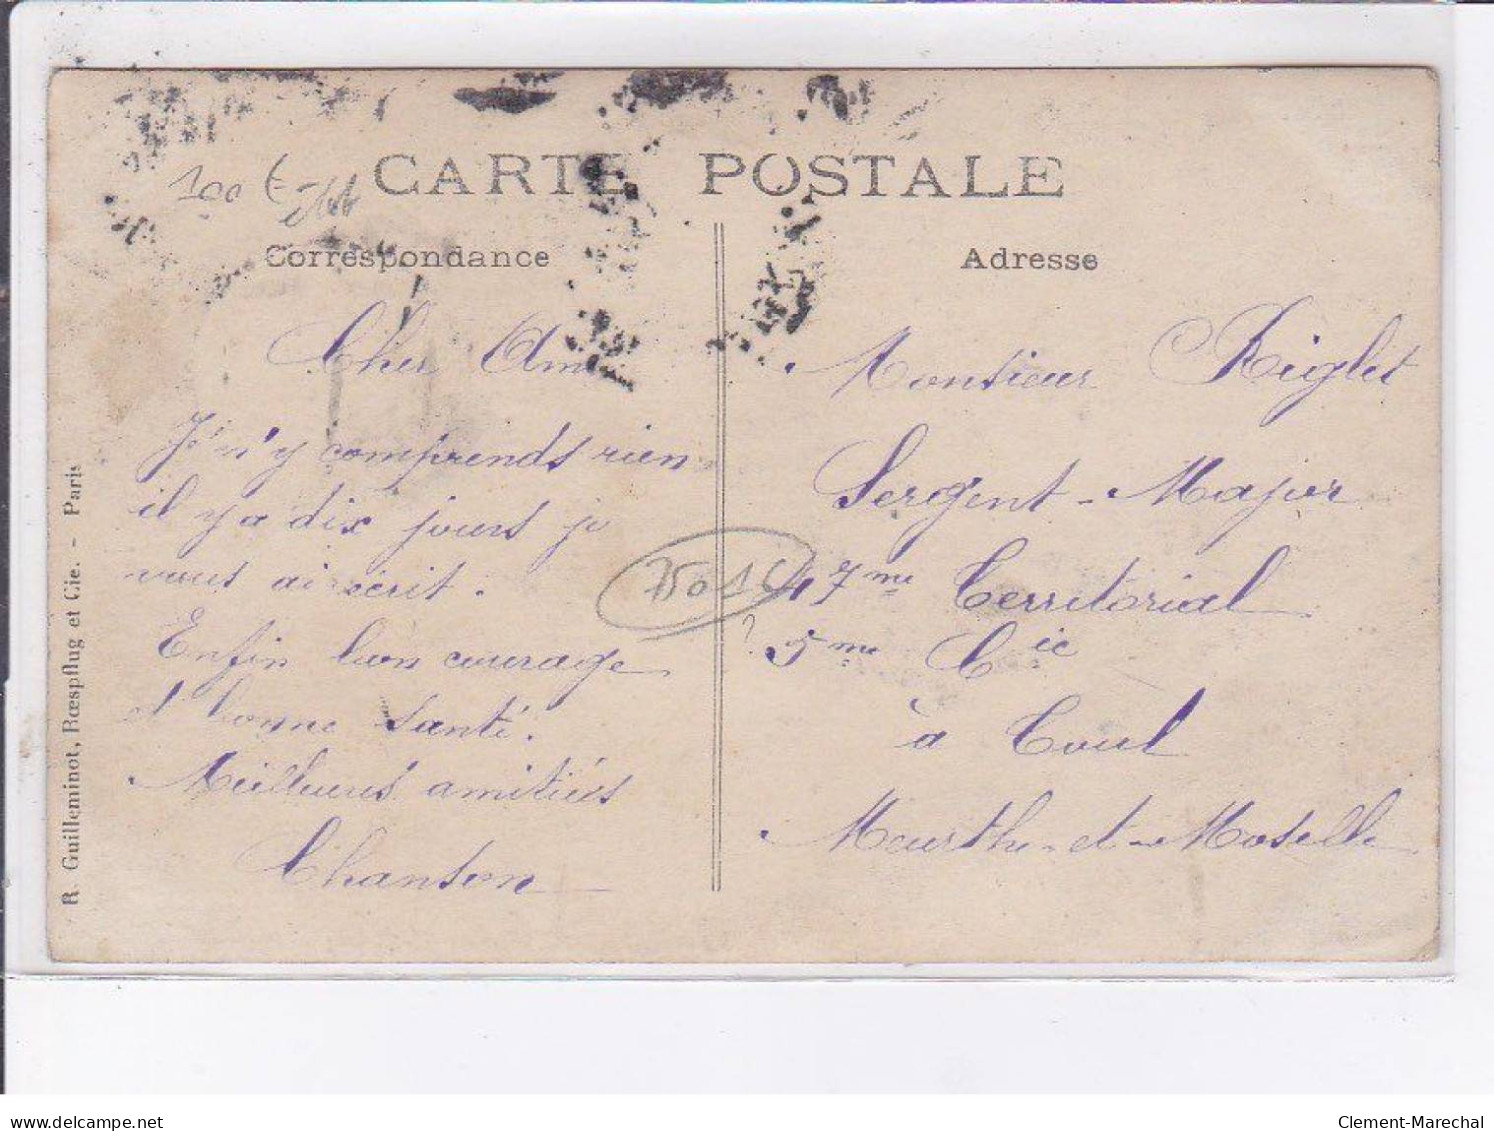 CARTE POSTALE
Correspondance
Adresse
100 €
Cher Ami
Je n'y comprends rien
il y a dix jours je
vous ai écrit.
Enfin bon courage
et bonne santé.
Meilleures amitiés
Chanson
Monsieur Riglet
Sergent-Major
47me Territorial
? 5me Cie
à Toul
Meurthe-et-Moselle
R. Guilleminot, Rœspflug et Cie. - Paris
delcampe.net
Clement-Marechal